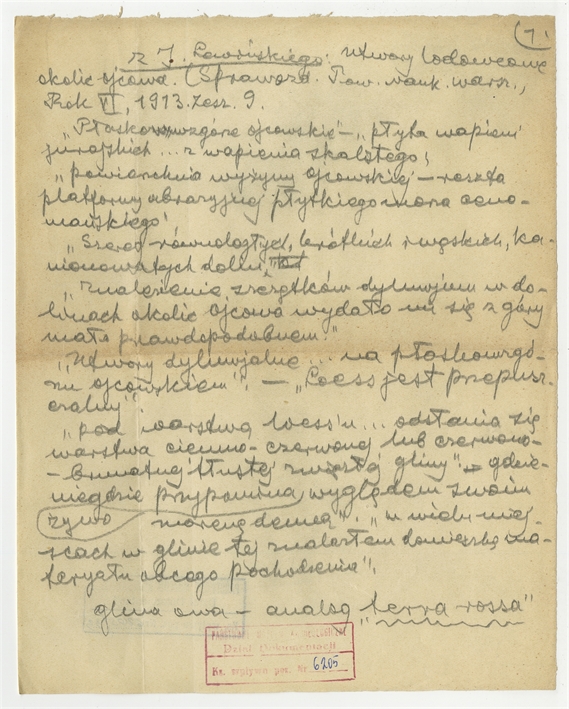 1.
z J. Lewińskiego: Utwory lodowcowe
okolic Ojcowa. (Sprawozd. Tow. nauk. warsz.,
Rok VI, 1913. zesz. 9.
"Płaskowzgórze ojcowskie" – "płyta wapieni
jurajskich... z wapienia skalistego"
"powierzchnia wyżyny Ojcowskiej – reszta
platformy abrazyjnej płytkiego morza ceno-
mańskiego"
"Szereg równoległych, krótkich i wąskich, ka-
nionowatych dolin"
"Znalezienie szczątków dyluwjum w do-
linach okolic Ojcowa wydało mi się z góry
mało prawdopodobnem."
"Utwory dyluwjalne... na płaskowzgó-
rzu ojcowskiem". – "Loess jest przepusz-
czalny".
"pod warstwą loess'u... odsłania się
warstwa ciemno-czerwonej lub czerwono-
-brunatnej tłustej zwięzłej gliny" – gdzie-
niegdzie przypomina wyglądem swoim
żywo morenę denną". "w wielu miej-
scach w glinie tej znalazłem domieszkę ma-
teryału obcego pochodzenia".
glina owa – analog "terra-rossa"
Dział Dokumentacji
Ks. wpływów poz. Nr 6205